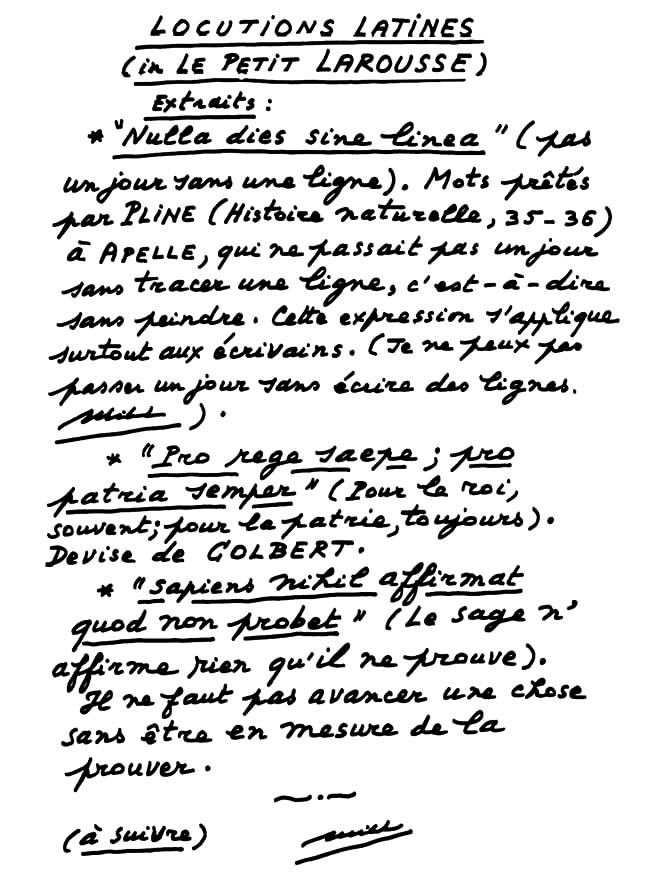 LOCUTIONS LATINES
(in LE PETIT LAROUSSE)
Extraits :
* "Nulla dies sine linea" (pas
un jour sans une ligne). Mots prêtés
par PLINE (Histoire naturelle, 35-36)
à APELLE, qui ne passait pas un jour
sans tracer une ligne, c'est-à-dire
sans peindre. Cette expression s'applique
surtout aux écrivains. (Je ne peux pas
passer un jour sans écrire des lignes.
).
* "Pro rege saepe ; pro
patria semper" (Pour le roi,
souvent; pour la patrie, toujours).
Devise de COLBERT.
* "Sapiens nihil affirmat
quod non probet" (Le sage n'
affirme rien qu'il ne prouve).
Il ne faut pas avancer une chose
sans être en mesure de la
prouver.
(à suivre)